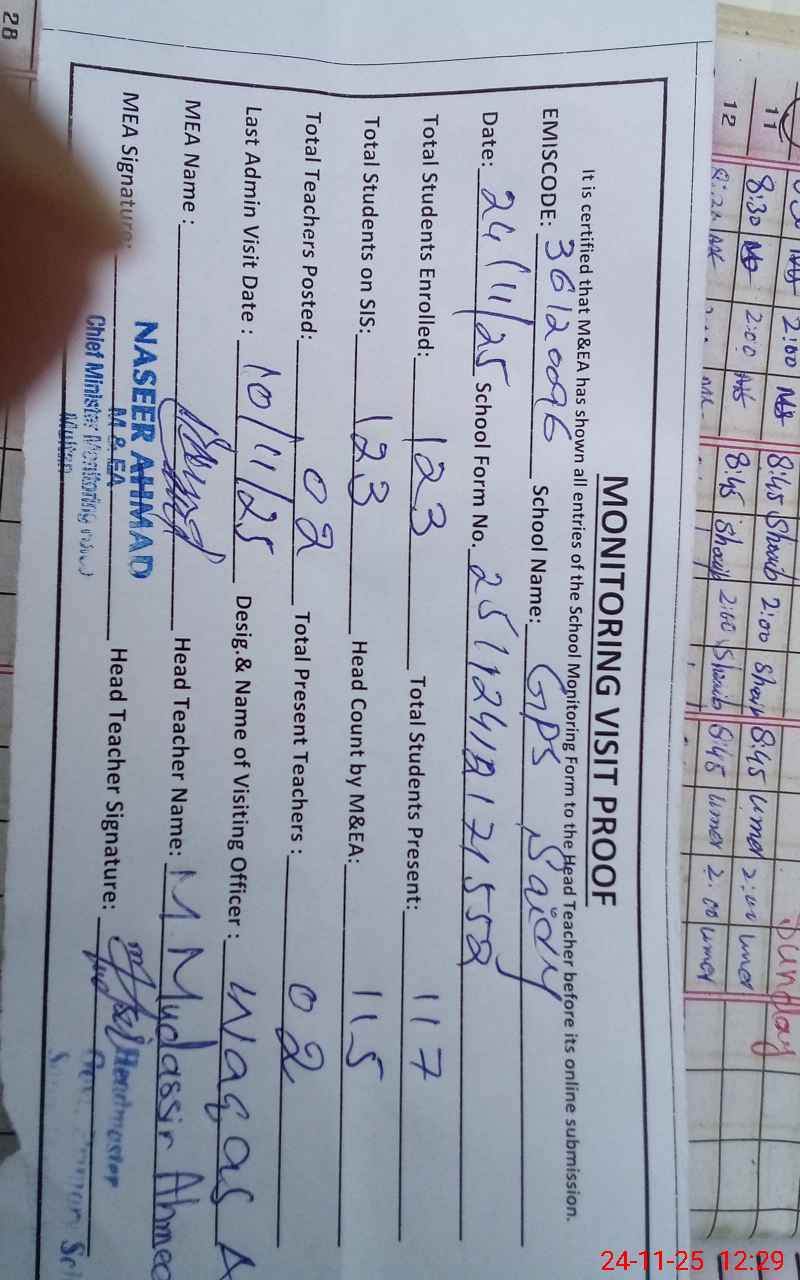 MONITORING VISIT PROOF
It is certified that M&EA has shown all entries of the School Monitoring Form to the Head Teacher before its online submission.
EMISCODE: 36120096 School Name: GPS Saidy
Date: 24/11/25 School Form No. 25112412171552
Total Students Enrolled: 123 Total Students Present: 117
Total Students on SIS: 123 Head Count by M&EA: 115
Total Teachers Posted: 02 Total Present Teachers : 02
Last Admin Visit Date : 10/11/25 Desig.& Name of Visiting Officer : Waqas A
MEA Name : Head Teacher Name: M Mudassir Ahmed
MEA Signature: Head Teacher Signature:
NASEER AHMAD
M & EA
Chief Minister Monitoring
Multan
Headmaster
28
11 8:30 2:00 8:45 Shoaib 2:00 Shoaib 8:45 Umer 2:00 Umer
12 8:45 Shoaib 2:00 Shoaib 8:45 Umer 2:00 Umer
Sunday
24-11-25 12:29